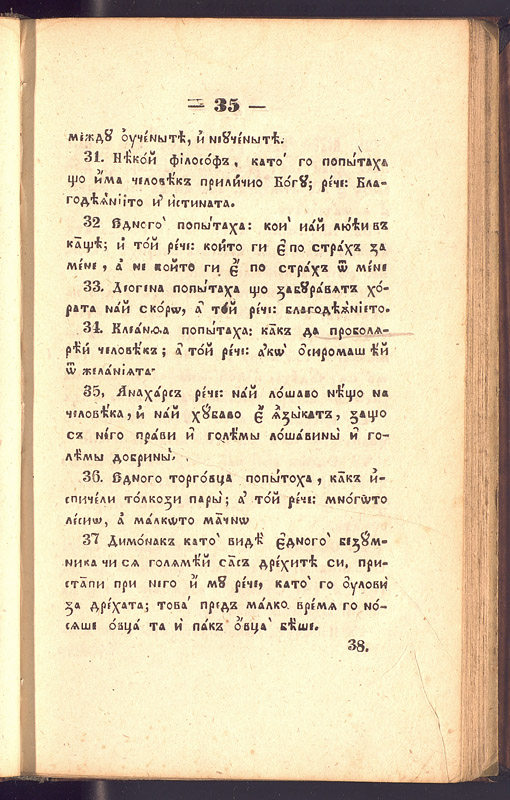 = 35 —
междꙋ ᲂу҆че́нытѣ, и҆ неꙋче́нытѣ.
31. Нѣ́кой фїлосо́фъ, като̀ го попы́таха
що и҆́ма человѣ́къ прили́чно Бо́гꙋ; ре́че: Бла-
годѣѧ́нїето и҆ и҆́стината.
32 Єдного̀ попы́таха: кои̑ на́й лю́ти въ
ка́щѣ; и҆ то́й ре́че: който ги є҆̀ по стра́хъ за
ме́не, а҆ не който ги є҆̀ по стра́хъ ѿ ме́не
33. Дїогена попы́таха що забꙋра́вятъ хо́-
рата на́й ско́рѡ, а҆ то́й ре́че: благодѣѧ́нїето.
34. Клеа́нѳа попы́таха: ка́къ да проболя-
рѣ́й человѣ́къ; а҆ то́й ре́че: а҆́кѡ ѡ҆сиромаш ѣ́й
ѿ жела́нїята.
35, Анаха́рсъ ре́че: на́й ло́шаво нѣ́що на
человѣ́ка, и҆ на́й хꙋ́баво є҆̀ ѧ҆зы́катъ, защо
съ не́го пра́ви и҆ голѣ́мы ло́шавины̀ и҆ го-
лѣ́мы добрины̀.
36. Єдного торго́вца попы́тоха, ка́къ и҆-
спиче́ли то́лкози пары̀; а҆ то́й ре́че: мно́гѡто
ле́снѡ, а҆ ма́лкѡто ма́чнѡ
37 Димо́накъ като̀ видѣ̀ є҆́дного̀ безꙋ́м-
ника чи ся голямѣ́й са́съ дре́хитѣ си, при-
ста́пи при него и҆ мꙋ ре́че, като̀ го ᲂу҆ловѝ
за дре́хата; това̀ предъ ма́лко вре́мя го но́-
сяше ѻ҆вца̀ та и҆ па́къ ѻ҆вца̀ бѣ́ше.
38.